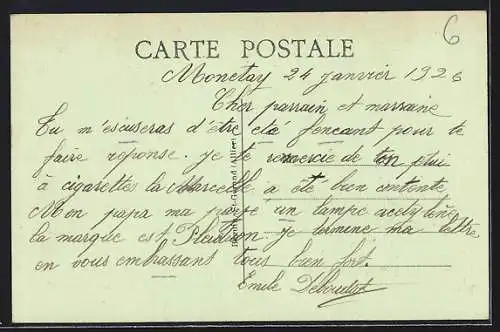 6
CARTE POSTALE
Monetay 24 janvier 1926
Cher parrain et marraine
Tu m'escuseras d'être etá fencant pour te
faire réponse. je te remercie de ton etui
à cigarettes la Marcelle a été bien contente
Mon papa ma paye un lampe acetylène
la marque est je termine ma lettre
en vous embrassant tous bien fort.
Emile